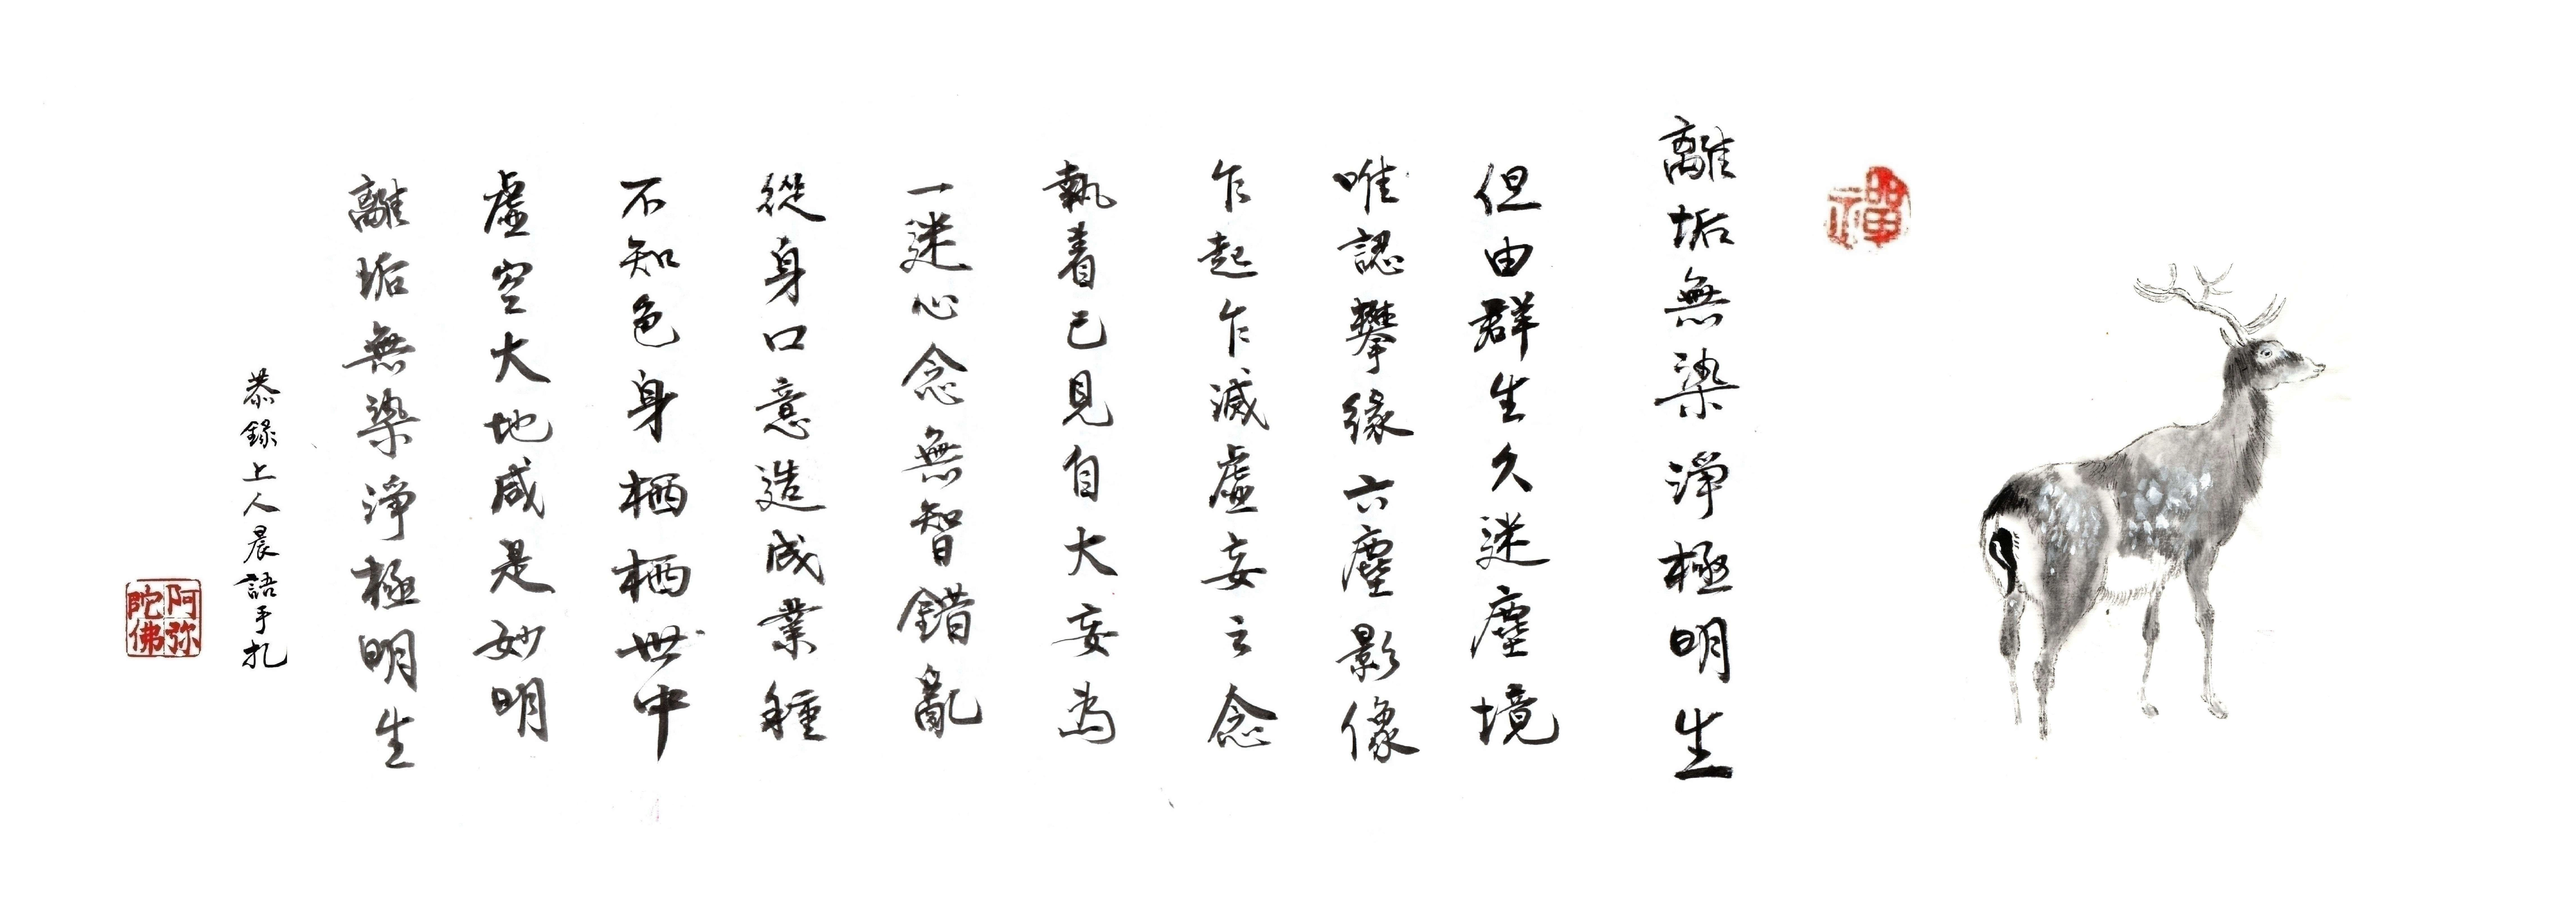 禪
離垢無染淨極明生
但由群生久迷塵境
唯認攀緣六塵影像
乍起乍滅虛妄之念
執着已見自大妄為
一迷心念無智錯亂
從身口意造成業種
不知色身栖栖世中
虛空大地咸是妙明
離垢無染淨極明生
恭錄上人晨語手札
阿弥陀佛